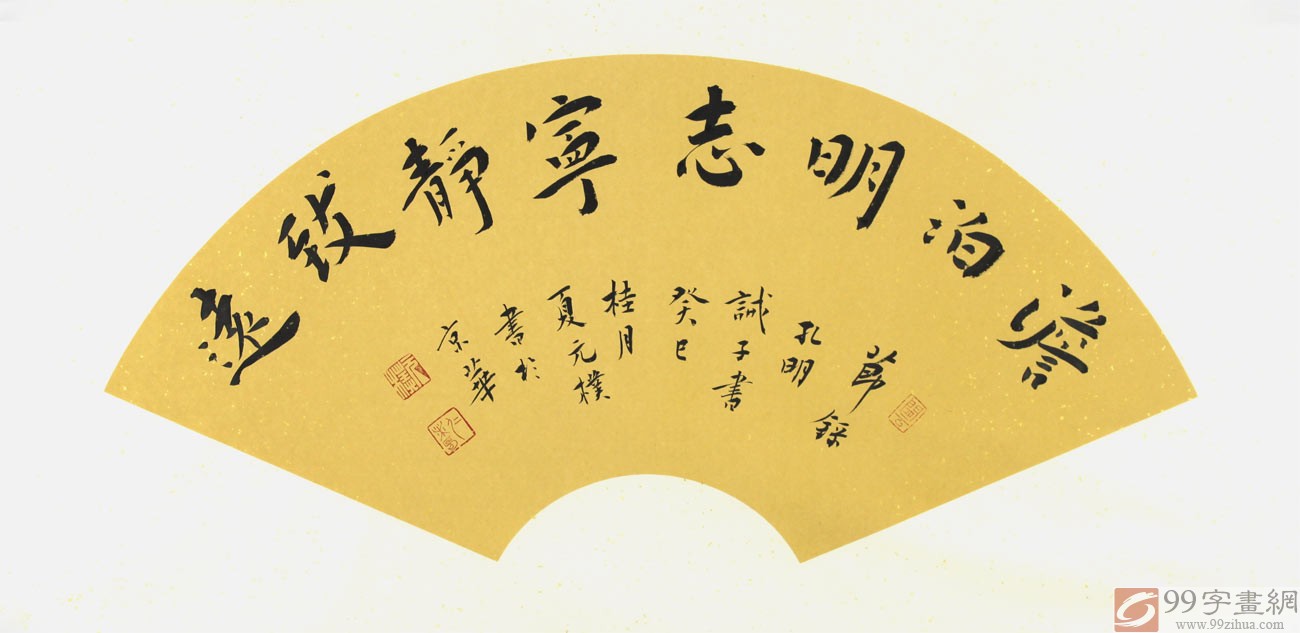 詹泊明志寧靜致遠
節錄
孔明
誡子書
癸巳
桂月
夏元樸
書於
京華
99字畫網
www.99zihua.com